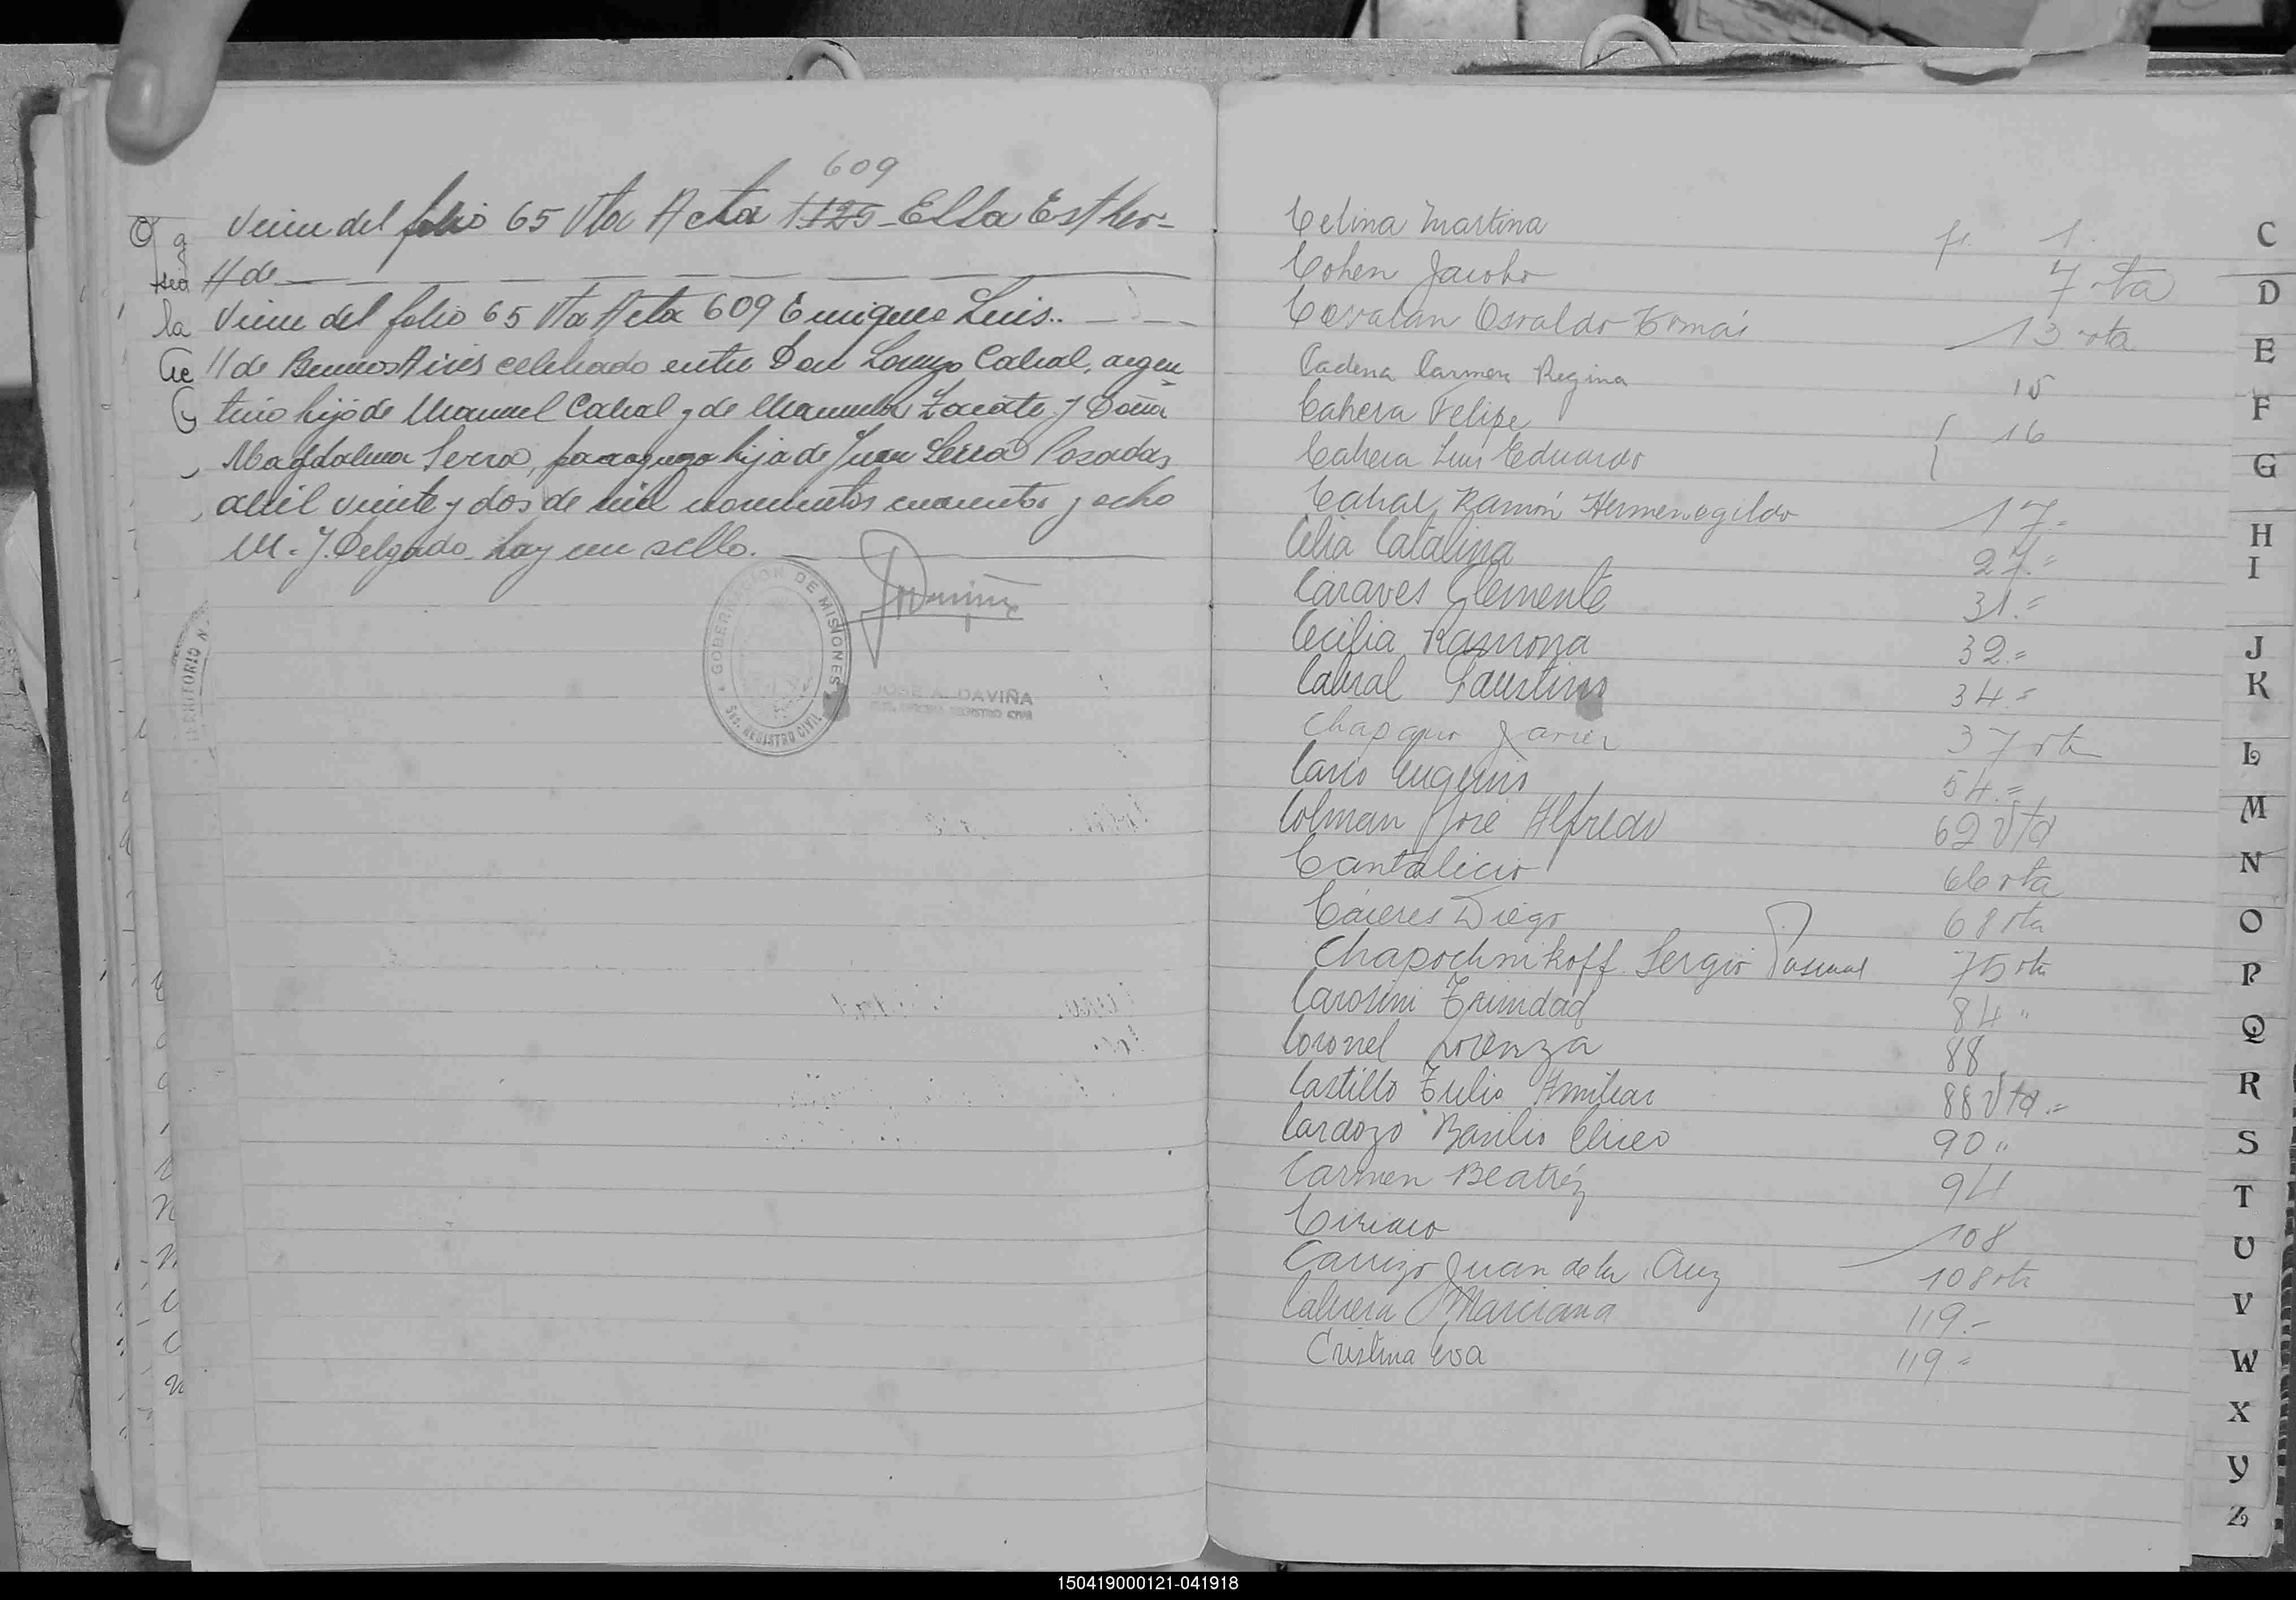 609
Viene del folio 65 Vta Acta 1125 - Ella Esther -
// de
Viene del folio 65 Vta Acta 609 Enrique Luis..
// de Buenos Aires celebrado entre Don Lorenzo Cabral, argen
tino hijo de Manuel Cabral y de Manuela Zarate y Doña
Magdalena Serra, paraguaya hija de Juan Serra Posadas
abril veinte y dos de mil novecientos cuarenta y ocho
M. J. Delgado hay un sello.
GOBERNACION DE MISIONES
Sec. REGISTRO CIVIL
JOSE A. DAVIÑA
TERRITORIO N.
Celina Martina fs. 1.
Cohen Jacobo 7 vta
Corvalan Osvaldo Tomás 13 vta
Cadena Carmen Regina 15
Cabrera Felipe 16
Cabrera Luis Eduardo
Cabral Ramón Hermenegildo 17.
Celia Catalina 27.=
Caraves Clemente 31.=
Cecilia Ramona 32.=
Cabral Faustino 34.=
Javier 37 vta
Eugenio 54.=
Colman José Alfredo 62 Vta
Cantalicio 66 vta
Cáceres Diego 68 vta
Chapochnikoff Sergio Pascual 75 vta
Carolini Trinidad 84 "
Coronel Lorenza 88
Castillo Tulio Amilcar 88 Vta.=
Cardozo Basilio Eliseo 90 "
Carmen Beatríz 94
Ciriaco 108
Carrizo Juan de la Cruz 108 vta
Cabrera Marciana 119.-
Cristina Eva 119 =
C
D
E
F
G
H
I
J
K
L
M
N
O
P
Q
R
S
T
U
V
W
X
Y
Z
150419000121-041918